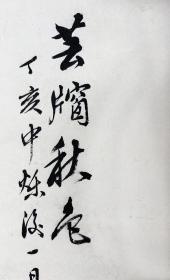 芸牕秋色
丁亥中秋後一日